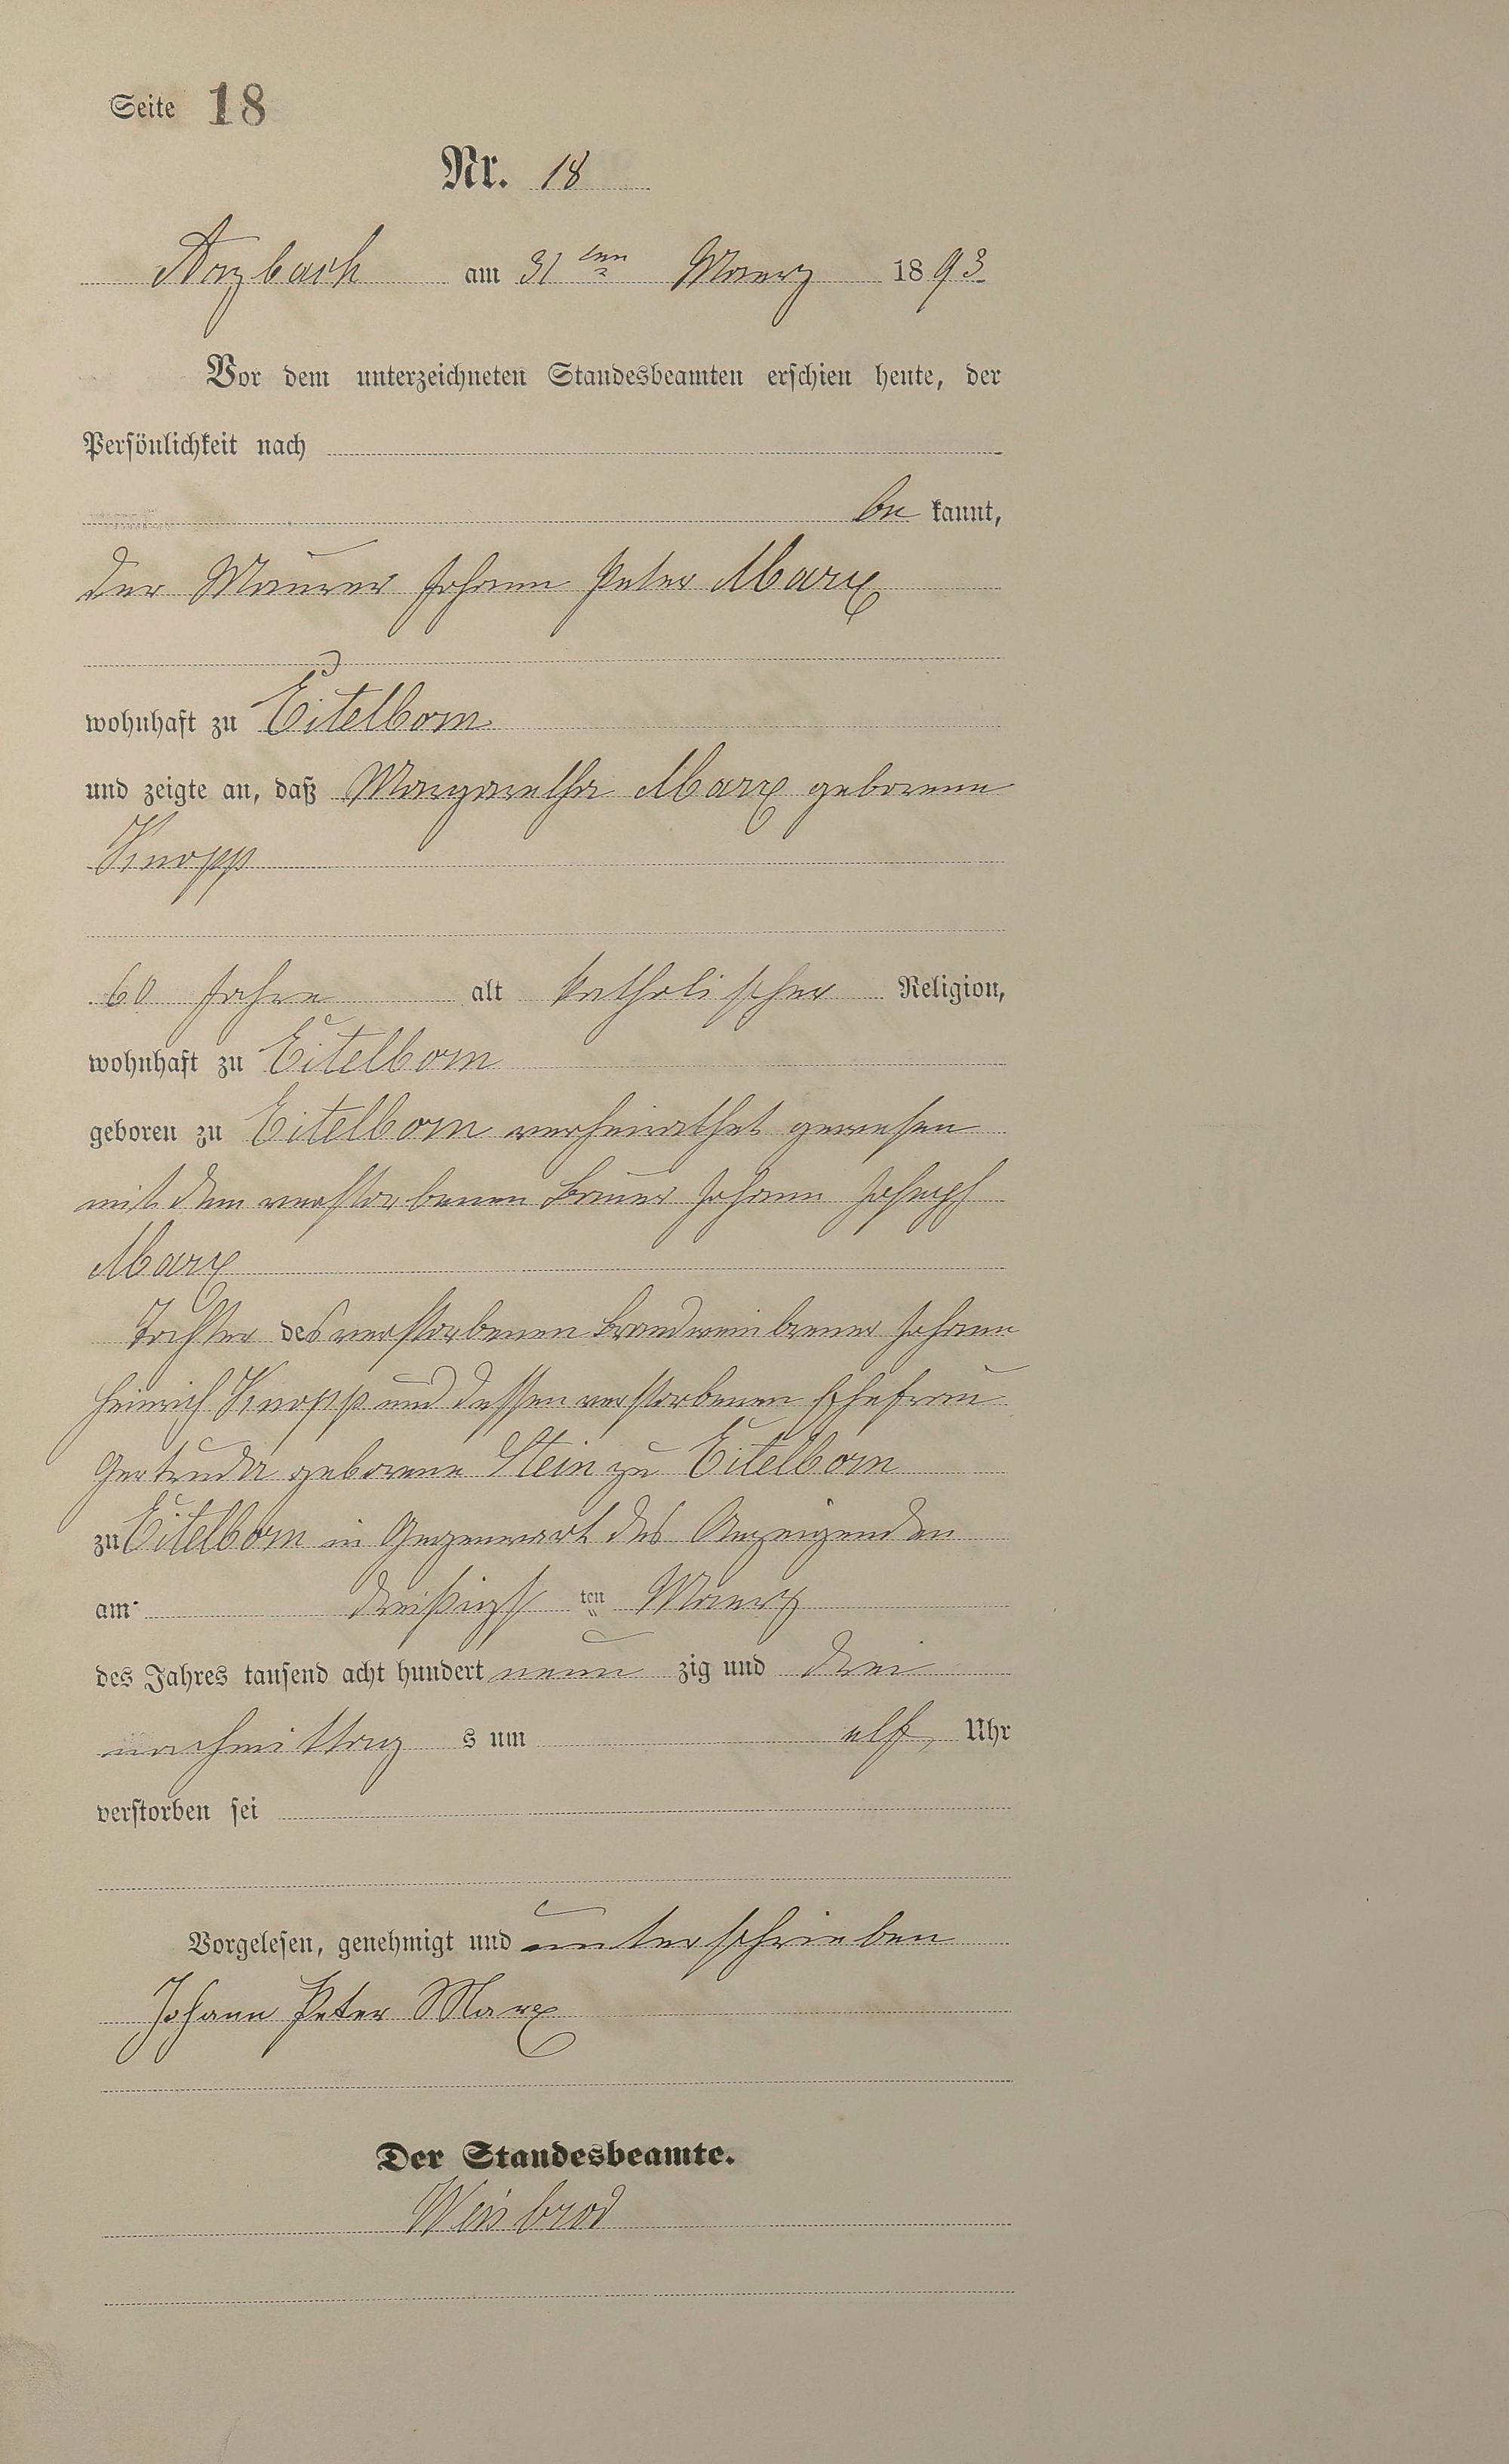 Seite 18
Nr. 18
Arzbach am 31ten Maerz 1893
Vor dem unterzeichneten Standesbeamten erschien heute, der
Persönlichkeit nach
be kannt,
der Maurer Johann Peter Marx
wohnhaft zu Eitelborn
und zeigte an, daß Margaretha Marx geborene
Knopp
60 Jahre alt katholischer Religion,
wohnhaft zu Eitelborn
geboren zu Eitelborn verheirathet gewesen
mit dem verstorbenen Bauer Johann Joseph
Marx
Tochter des verstorbenen Brandweinbrenner Johann
Heinrich Knopp und dessen verstorbenen Ehefrau
Gertruda geborene Stein zu Eitelborn
zu Eitelborn in Gegenwart des Anzeigenden
am dreißigsten Maerz
des Jahres tausend acht hundert neun zig und drei
nachmittag s um elf Uhr
verstorben sei
Vorgelesen, genehmigt und unterschrieben
Johann Peter Marx
Der Standesbeamte.
Weisbrod